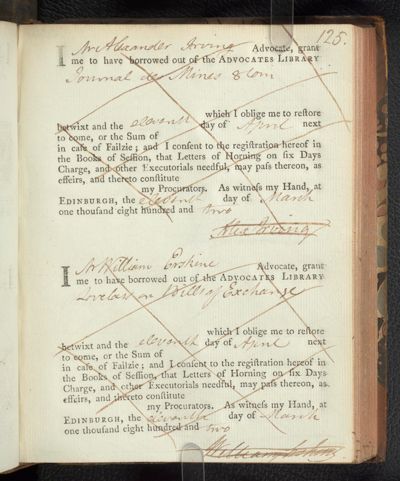 125.
I Mr Alexander Irving Advocate, grant
me to have borrowed out of the ADVOCATES LIBRARY
Journal des Mines 8 Tom
which I oblige me to reſtore
betwixt and the eleventh day of April next
to come, or the Sum of
in caſe of Failzie; and I conſent to the regiſtration hereof in
the Books of Seſſion, that Letters of Horning on ſix Days
Charge, and other Executorials needful, may paſs thereon, as
effeirs, and thereto conſtitute
my Procurators. As witneſs my Hand, at
EDINBURGH, the eleventh day of March
one thouſand eight hundred and two
Alex Irving
I Mr William Erskine Advocate, grant
me to have borrowed out of the ADVOCATES LIBRARY
Lovelass on Bills of Exchange
which I oblige me to reſtore
betwixt and the eleventh day of April next
to come, or the Sum of
in caſe of Failzie; and I conſent to the regiſtration hereof in
the Books of Seſſion, that Letters of Horning on ſix Days
Charge, and other Executorials needful, may paſs thereon, as
effeirs, and thereto conſtitute
my Procurators. As witneſs my Hand, at
EDINBURGH, the eleventh day of March
one thouſand eight hundred and two
William Erskine